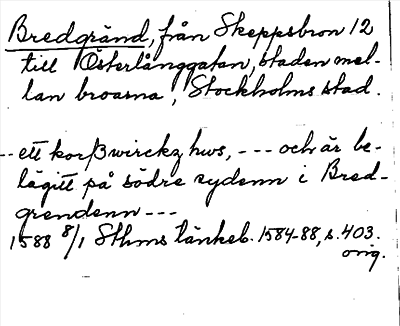 Bredgränd, från Skeppsbron 12
till Österlånggatan, staden mel-
lan broarna, Stockholms stad.
-- ett korßwirckz hws, --- och är be-
lägitt på södre sydenn i Bred-
grendenn ---
1588 8/1 Sthms tänkeb. 1584-88, s. 403.
orig.